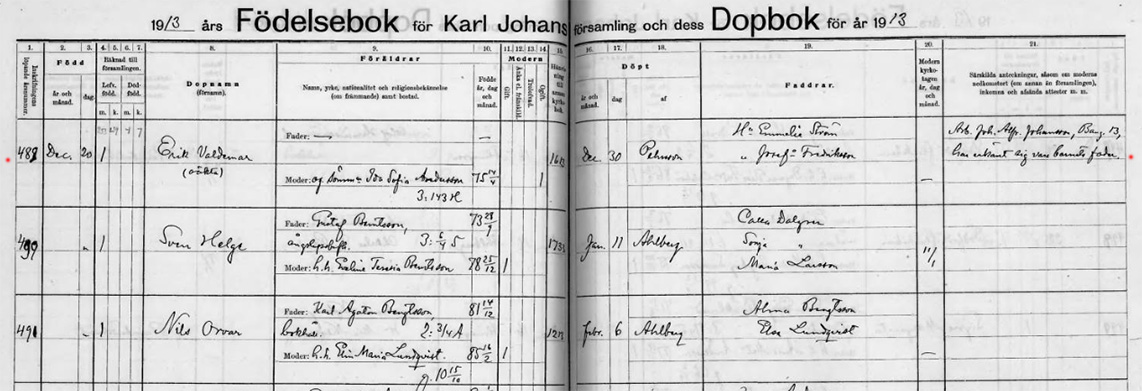 1913 års Födelsebok för Karl Johans församling och dess Dopbok för år 1913
1. 2. 3. 4. 5. 6. 7. 8. 9. 10. 11. 12. 13. 14. 15. 16. 17. 18. 19. 20. 21.
Född
år och månad.
dag.
Räknad till församlingen.
Lefv. föd.
Död- föd.
m. k. m. k.
Dopnamn
(förnamn).
Föräldrar
Namn, yrke, nationalitet och religionsbekännelse
(om främmande) samt bostad.
Födde
år, dag
och
månad.
Modern
Gift.
Trolofvad.
Ogift.
Döpt
år och månad.
dag
af
Faddrar.
Modern kyrko- tagen år, dag och månad.
Särskilda anteckningar, såsom om moderns
nedkomstort (om annan än församlingen),
inkomna och afsända attester m. m.
Dec. 20 1
Erik Valdemar
(oäkta)
Fader: —
Moder: Ida Sofia Andersson
75 14/4
3:143 H
1
Dec 30
Pehrsson
Emmeli Ström
" Josef Fredriksson
—
Arb. Joh. Alf. Johansson, Bang. 13,
har erkänt sig vara barnets fader.
490
" 1
Sven Helge
Fader: Gustaf Berntsson,
3: 6/4 5
Moder: h.h. Teresia Berntsson
78 25/12 1
Jan. 11
Ahlberg
Dalgren
Sonja "
Maria Larsson
11/1
491
" 1
Nils Orvar
Fader: Karl Agaton Bengtsson,
81 14/12
2: 3/4 A
Moder: h.h. Elin Maria Lundqvist.
85 16/2 1
g. 10 15/10
Febr. 6
Ahlberg
Alma Bengtsson
Elsa Lundqvist
—